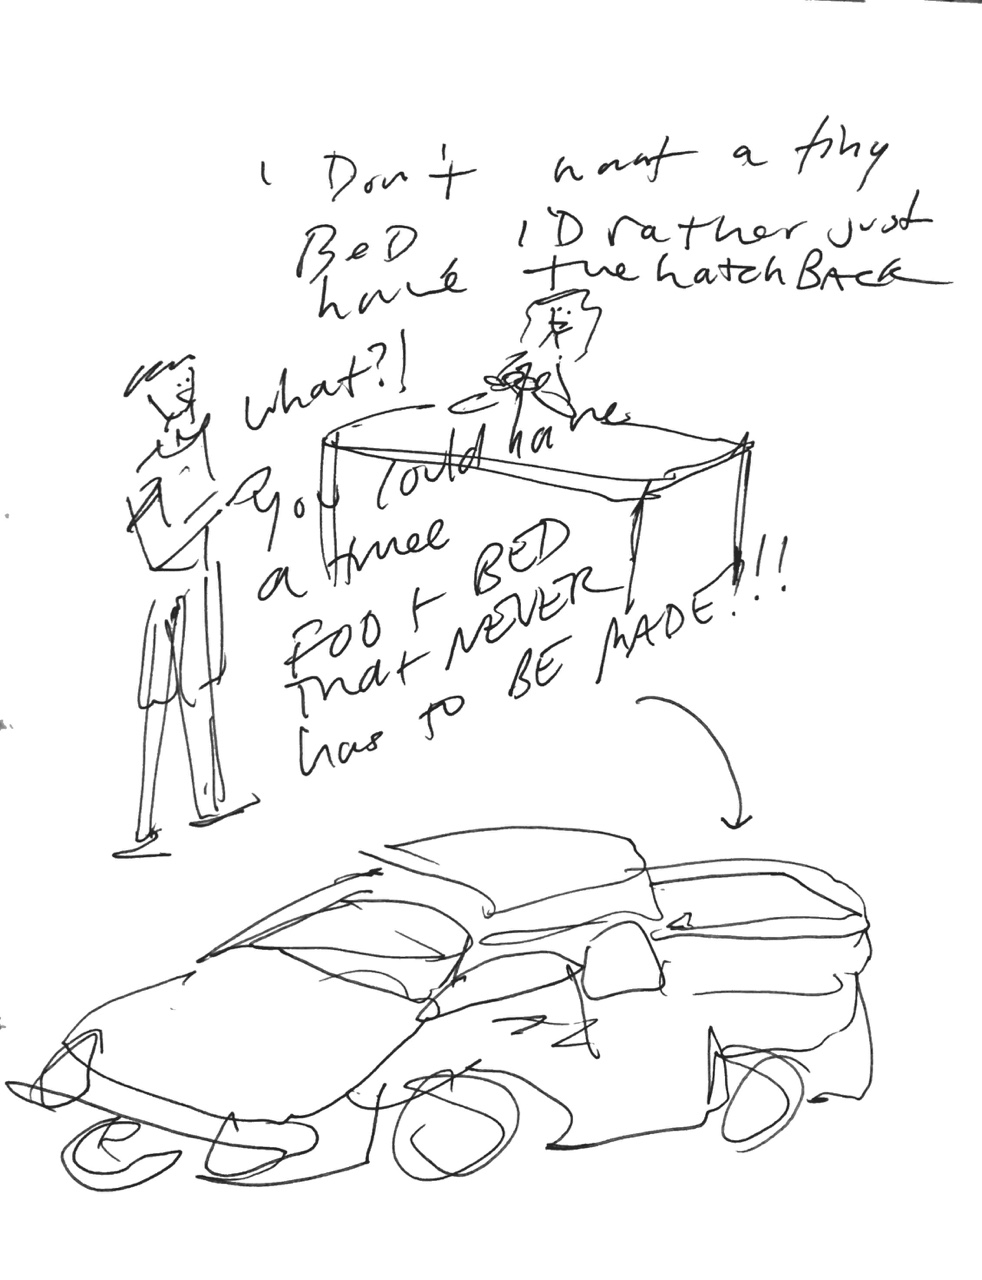 I Don't want a tiny
BeD I'D rather just
have the hatchBACK
what?!
you could have
a three
FOOt BED
that NEVER
has to BE MADE!!!